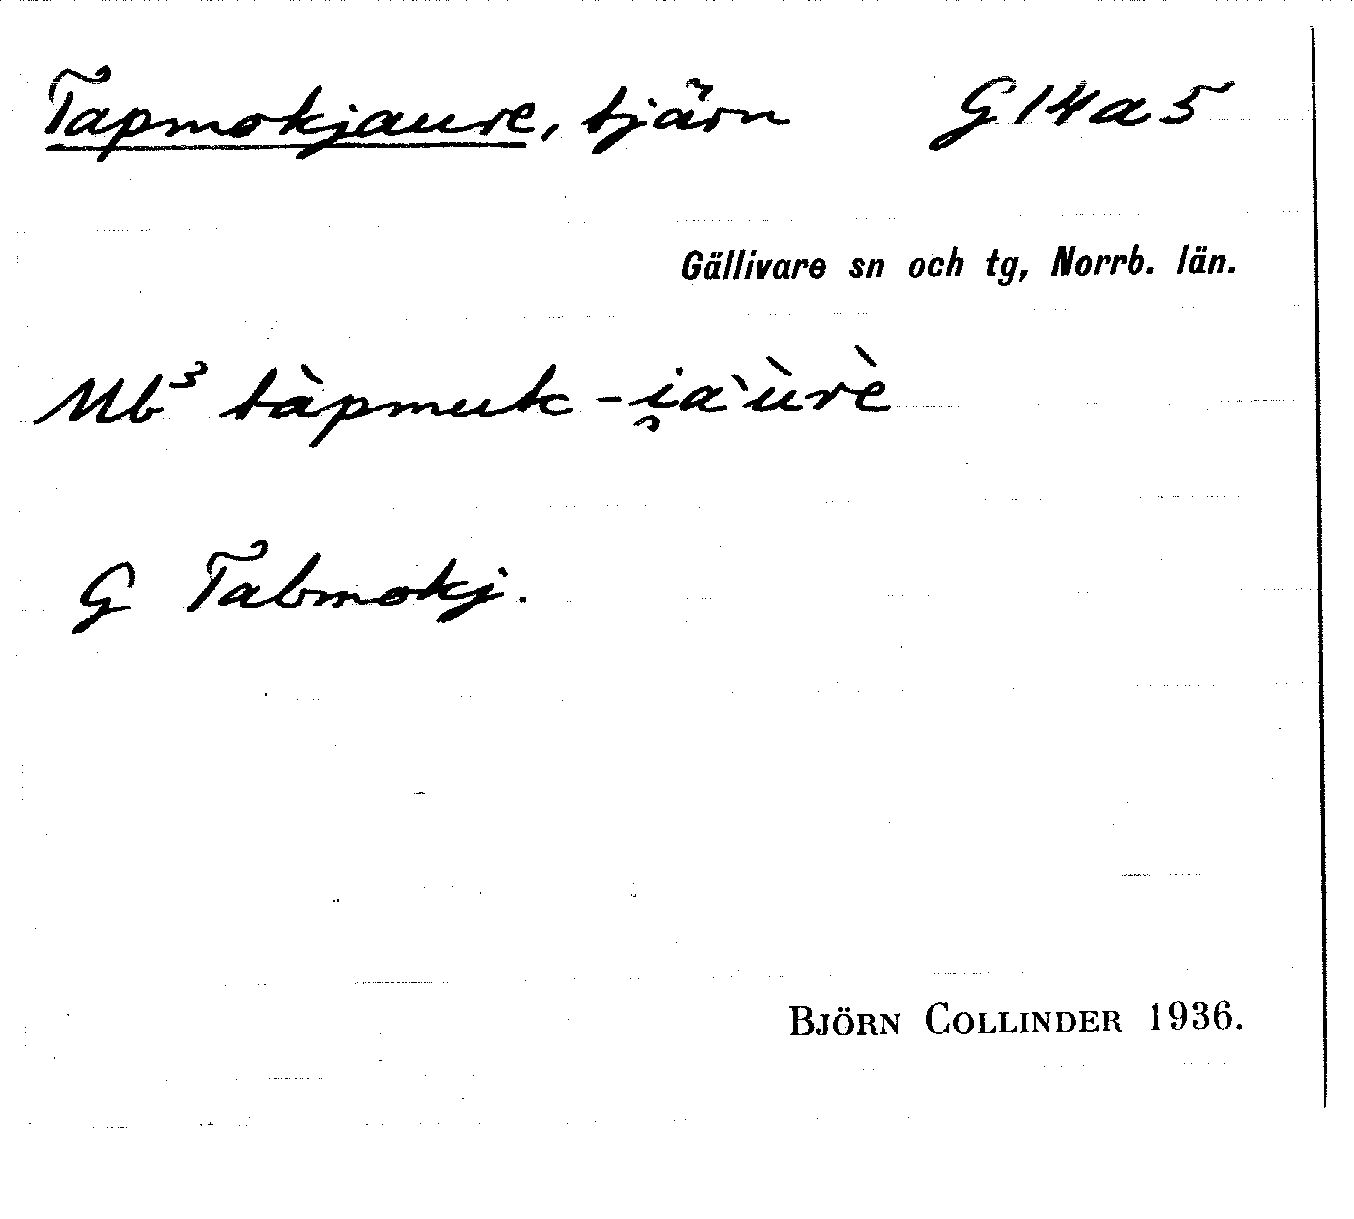 Tapmokjaure, tjärn G14a5
Gällivare sn och tg, Norrb. län.
Mb³ tàpmuk-i̯a`ùrè
G Tabmokj.
BJÖRN COLLINDER 1936.